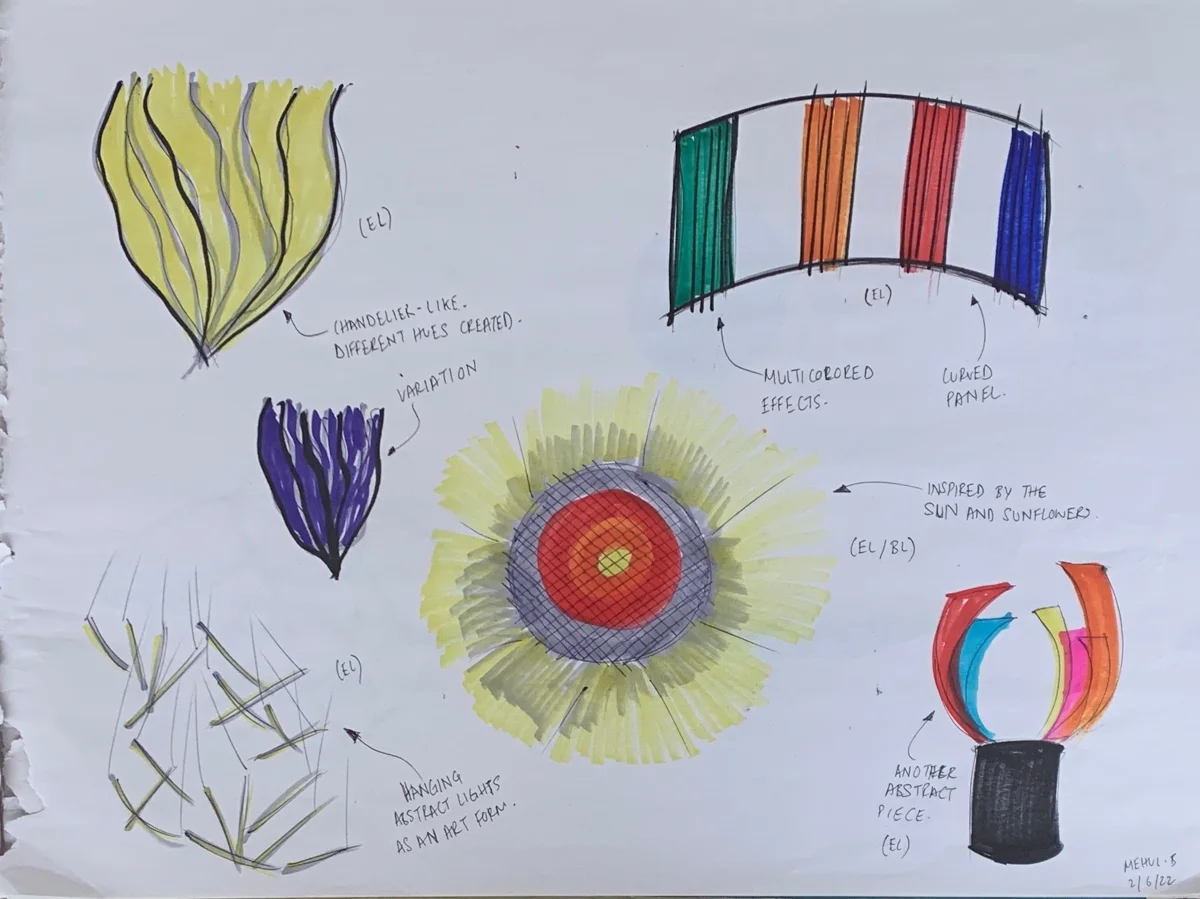 (EL)
CHANDELIER-LIKE.
DIFFERENT HUES CREATED.
VARIATION
(EL)
MULTICOLORED
EFFECTS.
CURVED
PANEL.
INSPIRED BY THE
SUN AND SUNFLOWERS.
(EL/BL)
(EL)
HANGING
ABSTRACT LIGHTS
AS AN ART FORM.
ANOTHER
ABSTRACT
PIECE.
(EL)
MEHUL.S
2/6/22